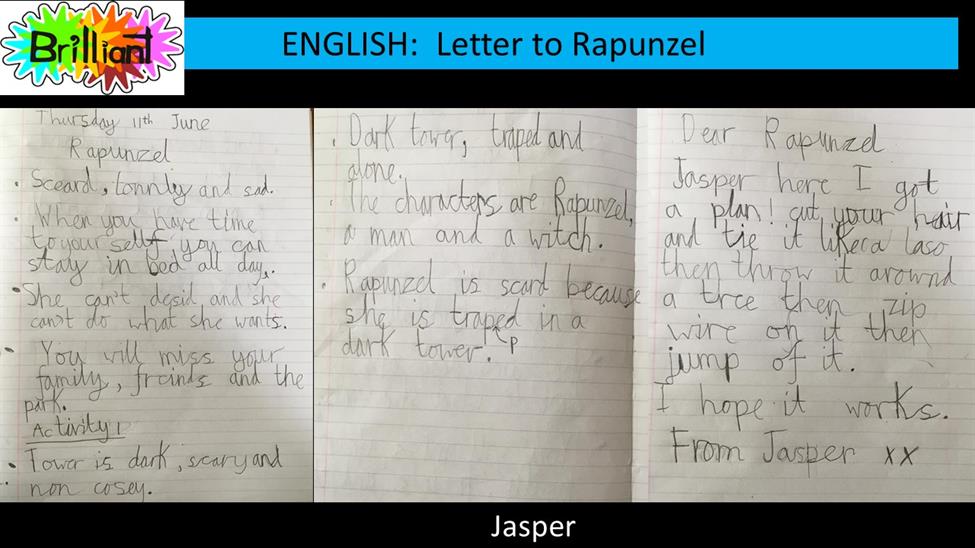 Brilliant
ENGLISH: Letter to Rapunzel
Thursday 11th June
Rapunzel
• Sceard, lonnly and sad.
• When you have time
to yourself you can
stay in bed all day.
• She can't desid and she
can't do what she wants.
• You will miss your
family, freinds and the
park.
Activity 1
• Tower is dark, scary and
non cosey.
• Dark tower, traped and
alone.
• The characters are Rapunzel,
a man and a witch.
• Rapunzel is scard because
she is traped in a
dark tower. p
Dear Rapunzel
Jasper here I got
a plan! cut your hair
and tie it like a laso
then throw it arownd
a tree then zip
wire on it then
jump of it.
I hope it works.
From Jasper xx
Jasper